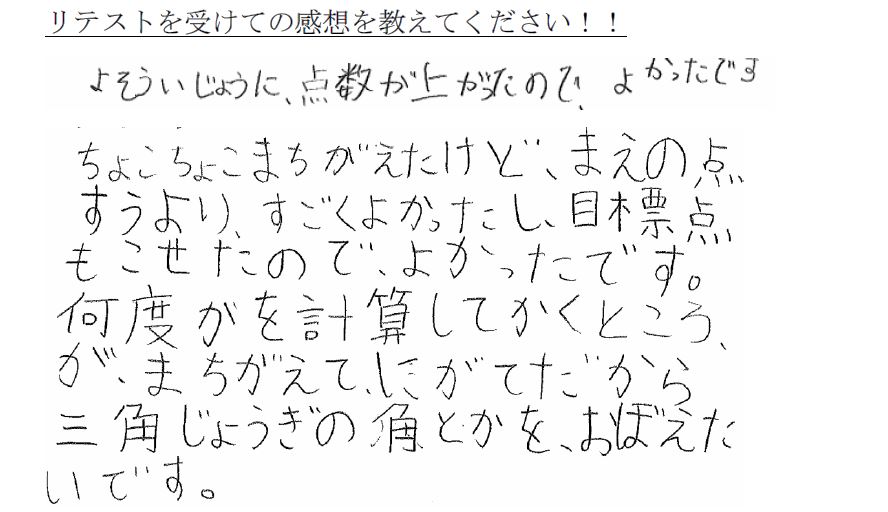 リテストを受けての感想を教えてください！！
よそういじょうに、点数が上がったので、よかったです
ちょこちょこまちがえたけど、まえの点
すうより、すごくよかったし、目標点
もこせたので、よかったです。
何度がを計算してかくところ、
が、まちがえて、にがてだから
三角じょうぎの角とかを、おぼえた
いです。